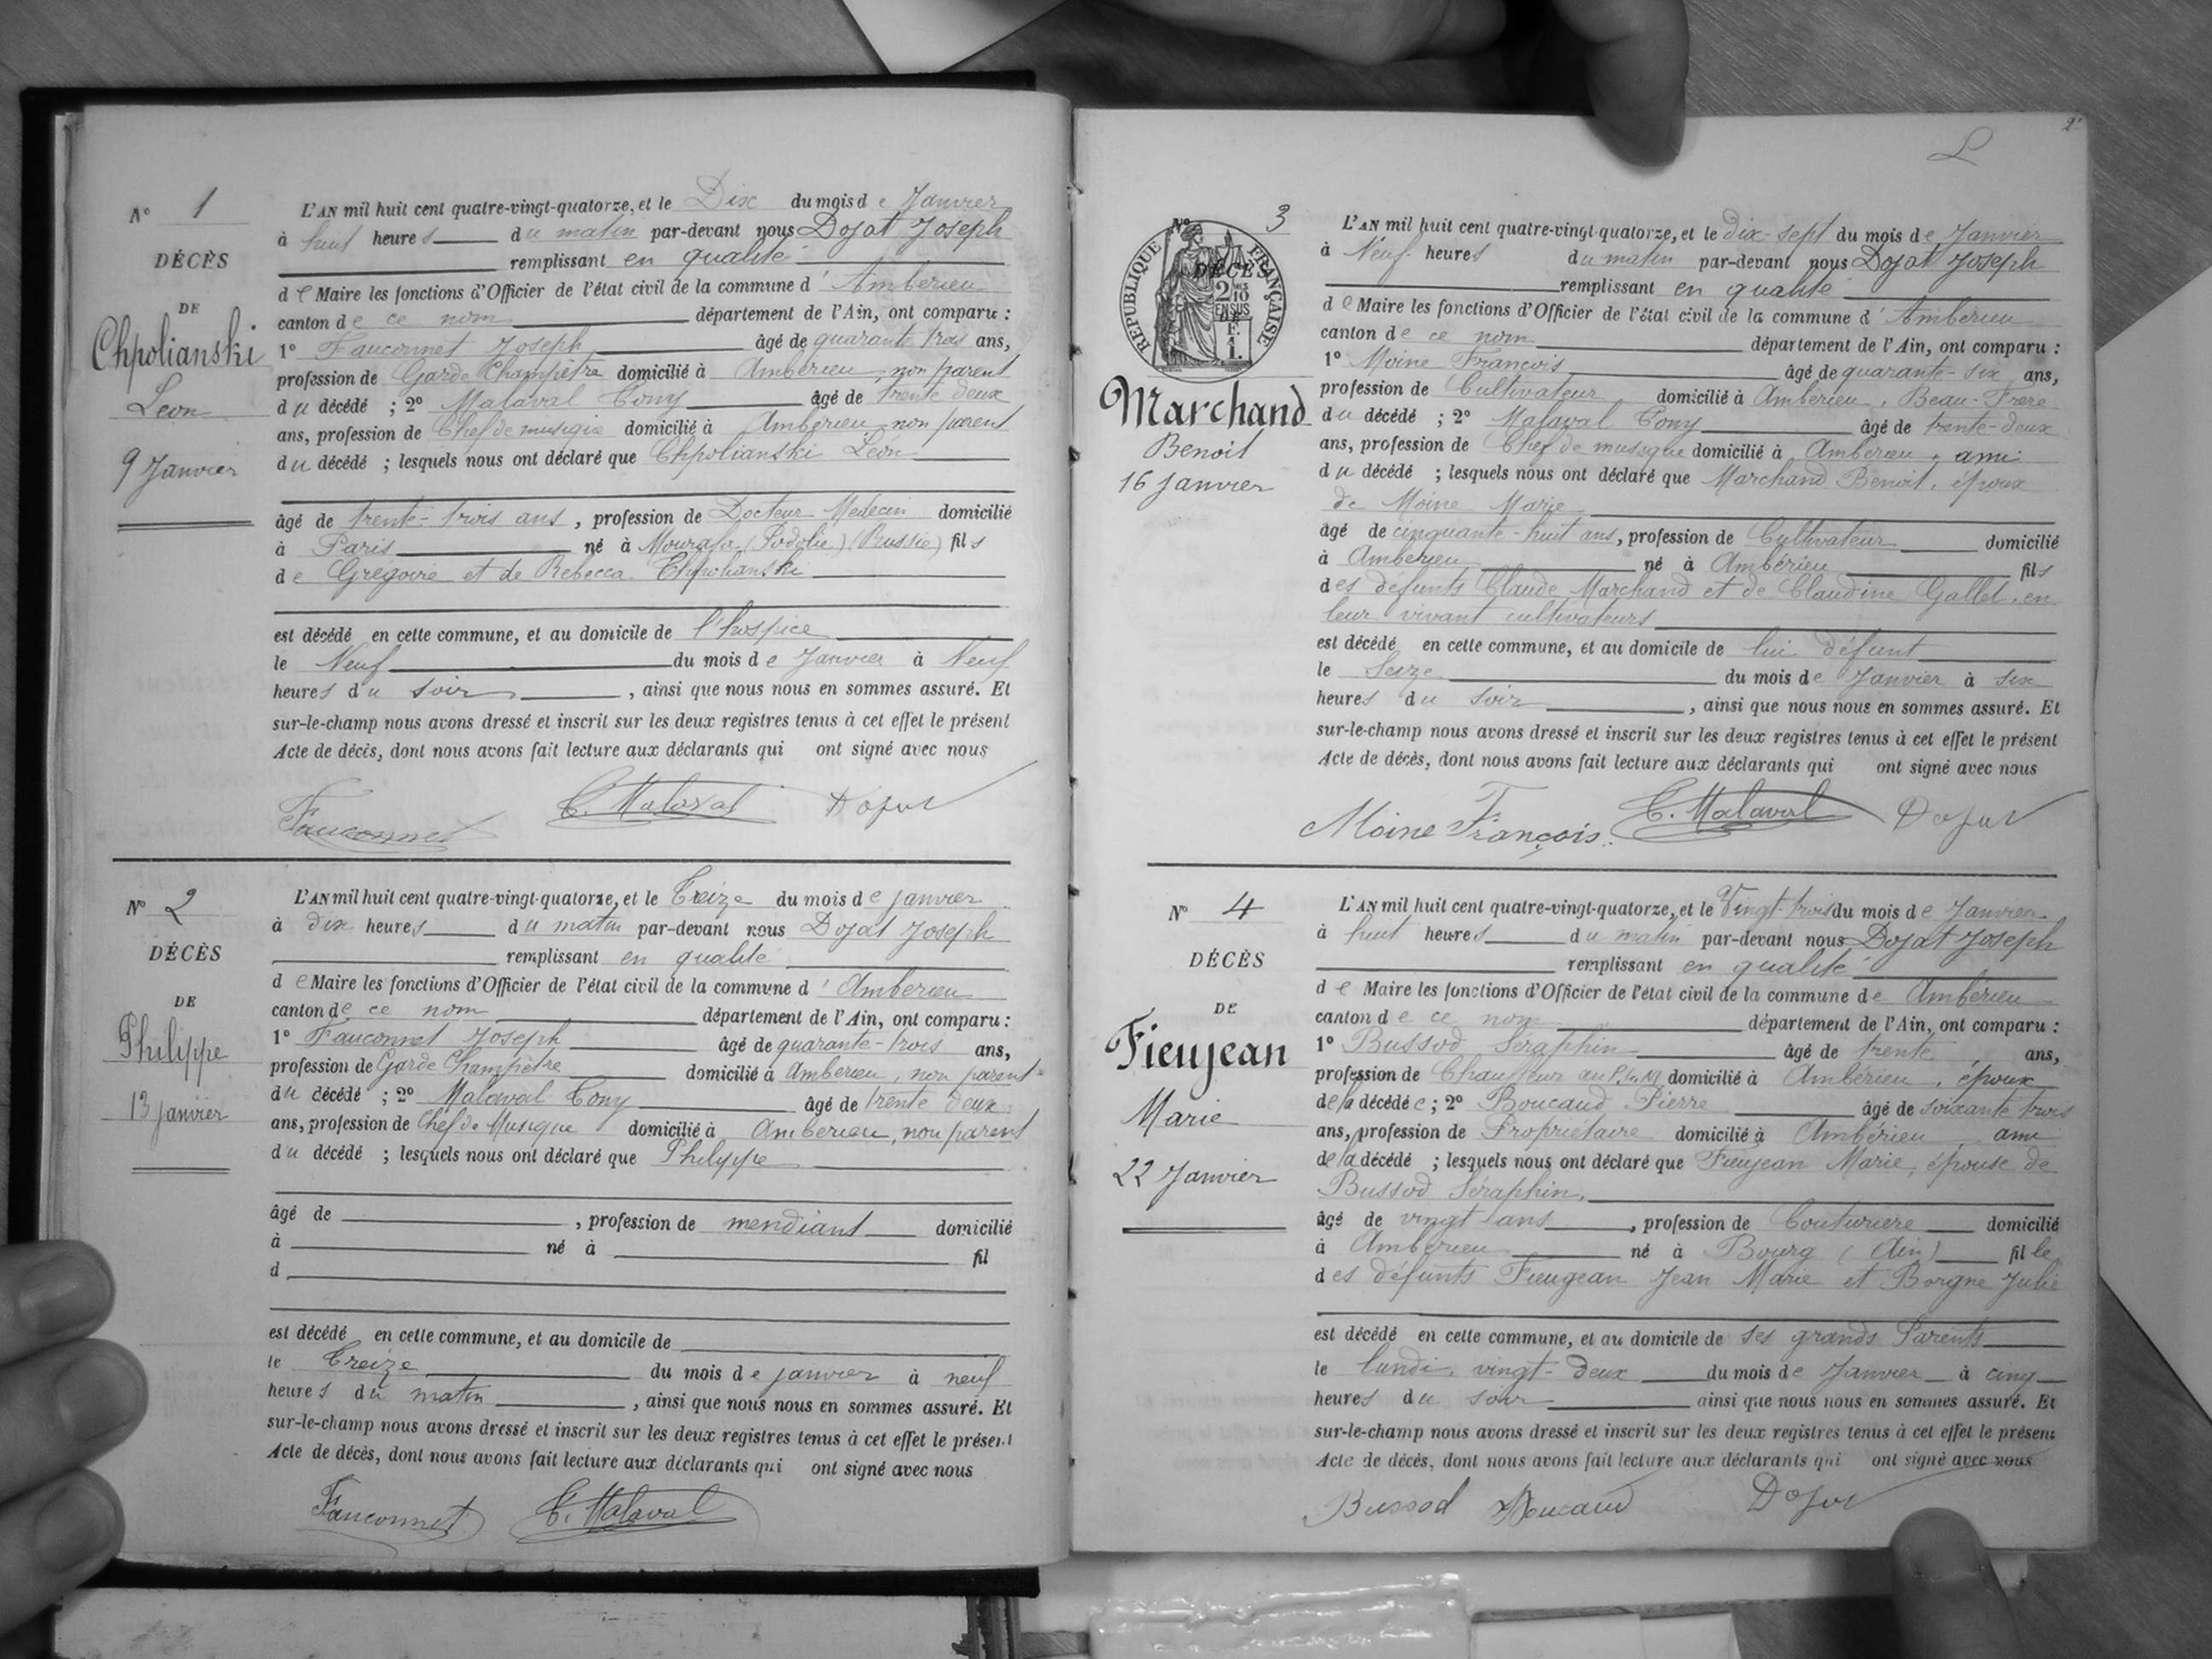 N° 1
DÉCÈS
DE
Chpolianski
Léon
9 Janvier
L'AN mil huit cent quatre-vingt-quatorze, et le Dix du mois de Janvier
à huit heures du matin par-devant nous Dojat Joseph
remplissant en qualité
de Maire les fonctions d'Officier de l'état civil de la commune d'Ambérieu
canton de ce nom département de l'Ain, ont comparu :
1° Fauconnet Joseph âgé de quarante trois ans,
profession de Garde Champêtre domicilié à Ambérieu, non parent
du décédé ; 2° Malaval Tony âgé de trente deux
ans, profession de Chef de musique domicilié à Ambérieu non parent
du décédé ; lesquels nous ont déclaré que Chpolianski Léon
âgé de trente-trois ans, profession de Docteur Medecin domicilié
à Paris né à Mourafa (Podolie) (Russie) fils
de Gregoire et de Rebecca Chpolianski
est décédé en cette commune, et au domicile de l'hospice
le Neuf du mois de Janvier à Neuf
heures du soir, ainsi que nous nous en sommes assuré. Et
sur-le-champ nous avons dressé et inscrit sur les deux registres tenus à cet effet le présent
Acte de décès, dont nous avons fait lecture aux déclarants qui ont signé avec nous
Fauconnet T. Malaval Dojat
N° 2
DÉCÈS
DE
Philippe
13 janvier
L'AN mil huit cent quatre-vingt-quatorze, et le Treize du mois de janvier
à dix heures du matin par-devant nous Dojat Joseph
remplissant en qualité
de Maire les fonctions d'Officier de l'état civil de la commune d'Amberieu
canton de ce nom département de l'Ain, ont comparu :
1° Fauconnet Joseph âgé de quarante-trois ans,
profession de Garde Champêtre domicilié à Amberieu, non parent
du décédé ; 2° Malaval Tony âgé de trente deux
ans, profession de Chef de Musique domicilié à Amberieu, non parent
du décédé ; lesquels nous ont déclaré que Philippe
âgé de , profession de mendiant domicilié
à né à fil
d
est décédé en cette commune, et au domicile de
le Treize du mois de janvier à neuf
heures du matin, ainsi que nous nous en sommes assuré. Et
sur-le-champ nous avons dressé et inscrit sur les deux registres tenus à cet effet le présent
Acte de décès, dont nous avons fait lecture aux déclarants qui ont signé avec nous
Fauconnet T. Malaval
2
N° 3
RÉPUBLIQUE FRANÇAISE
DÉCÈS
2/10 EN SUS
DE
1 F.
Marchand
Benoit
16 Janvier
L'AN mil huit cent quatre-vingt-quatorze, et le dix-sept du mois de Janvier
à Neuf heures du matin par-devant nous Dojat Joseph
remplissant en qualité
de Maire les fonctions d'Officier de l'état civil de la commune d'Ambérieu
canton de ce nom département de l'Ain, ont comparu :
1° Moine François âgé de quarante-six ans,
profession de Cultivateur domicilié à Ambérieu, Beau-Frère
du décédé ; 2° Malaval Tony âgé de trente-deux
ans, profession de Chef de musique domicilié à Ambérieu, ami
du décédé ; lesquels nous ont déclaré que Marchand Benoit, époux
de Moine Marie
âgé de cinquante-huit ans, profession de Cultivateur domicilié
à Ambérieu né à Ambérieu fils
des défunts Claude Marchand et de Claudine Gallet, en
leur vivant cultivateurs
est décédé en cette commune, et au domicile de lui défunt
le Seize du mois de Janvier à six
heures du soir, ainsi que nous nous en sommes assuré. Et
sur-le-champ nous avons dressé et inscrit sur les deux registres tenus à cet effet le présent
Acte de décès, dont nous avons fait lecture aux déclarants qui ont signé avec nous
Moine François. T. Malaval Dojat
N° 4
DÉCÈS
DE
Fieujean
Marie
22 Janvier
L'AN mil huit cent quatre-vingt-quatorze, et le Vingt-trois du mois de Janvier
à huit heures du matin par-devant nous Dojat Joseph
remplissant en qualité
de Maire les fonctions d'Officier de l'état civil de la commune de Ambérieu
canton de ce nom département de l'Ain, ont comparu :
1° Bussod Seraphin âgé de trente ans,
profession de Chauffeur au P.L.M domicilié à Ambérieu, époux
de la décédée ; 2° Boucaud Pierre âgé de soixante trois
ans, profession de Propriétaire domicilié à Ambérieu, ami
de la décédé ; lesquels nous ont déclaré que Fieujean Marie, épouse de
Bussod Séraphin,
âgé de vingt ans, profession de Couturière domicilié
à Ambérieu né à Bourg (Ain) fille
des défunts Fieugean Jean Marie et Borgne Julie
est décédé en cette commune, et au domicile de ses grands Parents
le lundi, vingt-deux du mois de Janvier à cinq
heures du soir ainsi que nous nous en sommes assuré. Et
sur-le-champ nous avons dressé et inscrit sur les deux registres tenus à cet effet le présent
Acte de décès, dont nous avons fait lecture aux déclarants qui ont signé avec nous
Bussod Boucaud Dojat